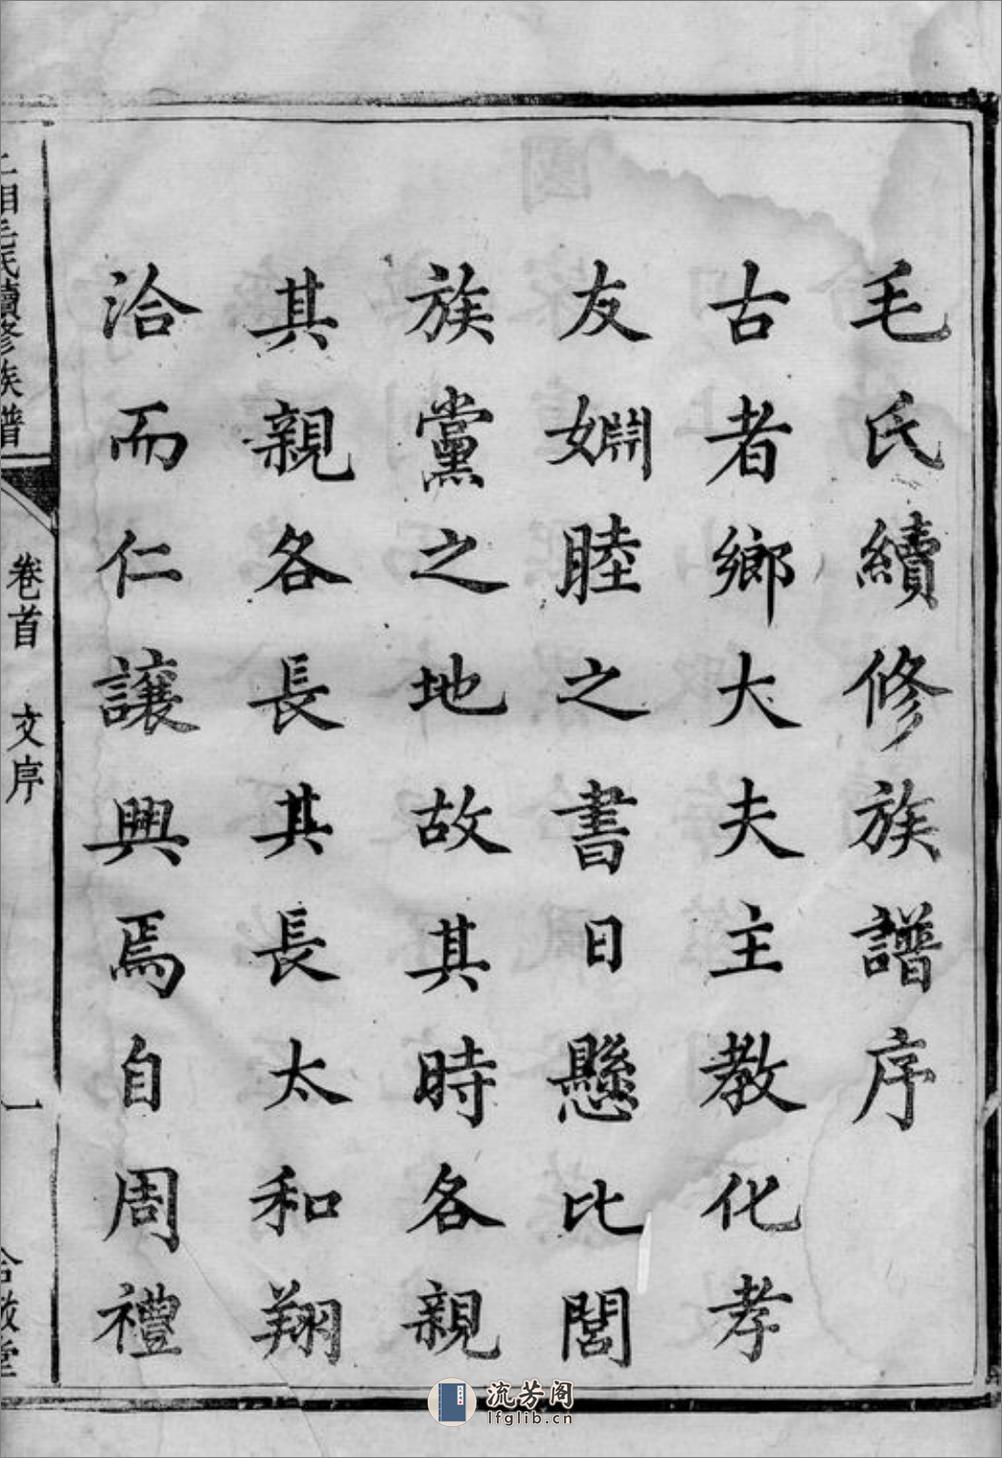 毛氏續修族譜序
古者鄉大夫主教化孝
友婣睦之書日懸比閭
族黨之地故其時各親
其親各長其長太和翔
洽而仁讓興焉自周禮
毛氏續修族譜
卷首 文序
一
流芳阁
lfglib.cn